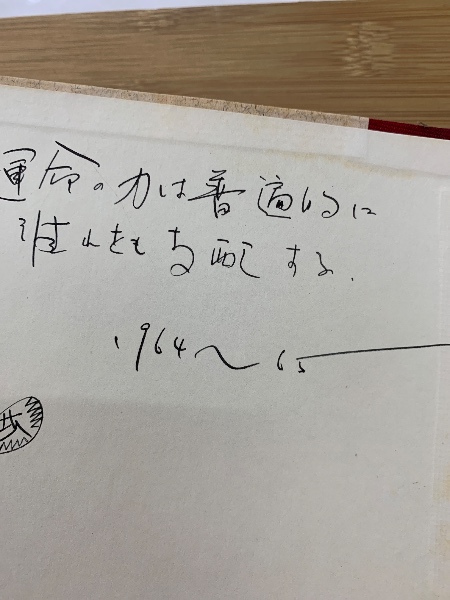 運命の力は普遍的に
誰れをも支配する.
1964〜65